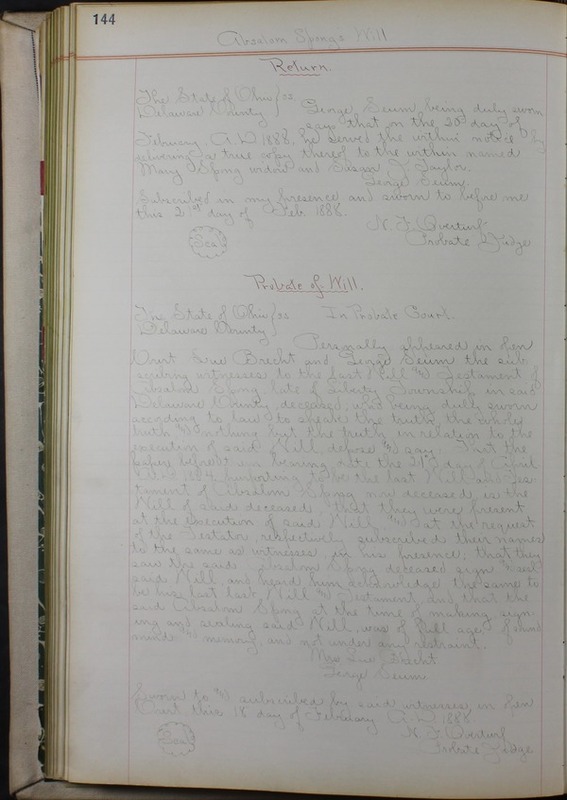 144
Absalom Spong's Will
Return.
The State of Ohio } ss
Delaware County
George Seum, being duly sworn
says that on the 20th day of
February A.D. 1888, he served the within notice by
delivering a true copy thereof to the within named
Mary Spong widow and Susan J. Taylor.
George Seum.
Subscribed in my presence and sworn to before me
this 21st day of Feb. 1888.
N. F. Overturf
Seal
Probate Judge
Probate of Will.
The State of Ohio } ss
In Probate Court.
Delaware County
Personally appeared in Open
Court Sue Brecht and George Seum the sub
scribing witnesses to the last Will and Testament of
Absalom Spong late of Liberty Township in said
Delaware County, deceased, who being duly sworn
according to law to speak the truth the whole
truth and nothing but the truth, in relation to the
execution of said Will, depose and say; That the
paper before them bearing date the 21st day of April
A.D. purporting to be the last Will and Tes
tament of Absalom Spong now deceased, is the
Will of said deceased, that they were present
at the execution of said Will, and at the request
of the Testator, respectively subscribed their names
to the same as witnesses, in his presence; that they
saw the said Absalom Spong deceased sign and seal
said Will, and heard him acknowledge the same to
be his last Will and Testament, and that the
said Absalom Spong at the time of making sign
ing and sealing said Will, was of full age, of sound
mind and memory, and not under any restraint.
Mrs Sue Brecht
George Seum
Sworn to and subscribed by said witnesses, in Open
Court this 18 day of February A.D. 1888.
N. F. Overturf
Seal
Probate Judge